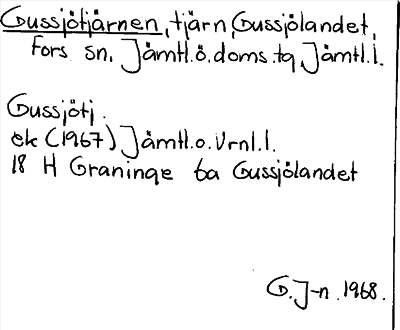 Gussjötjärnen, tjärn, Gussjölandet,
Fors sn, Jämtl.ö.doms.tg, Jämtl.l.
Gussjötj.
ek (1967) Jämtl.o.Vrnl.l.
18 H Graninge 6a Gussjölandet
G.J-n.1968.